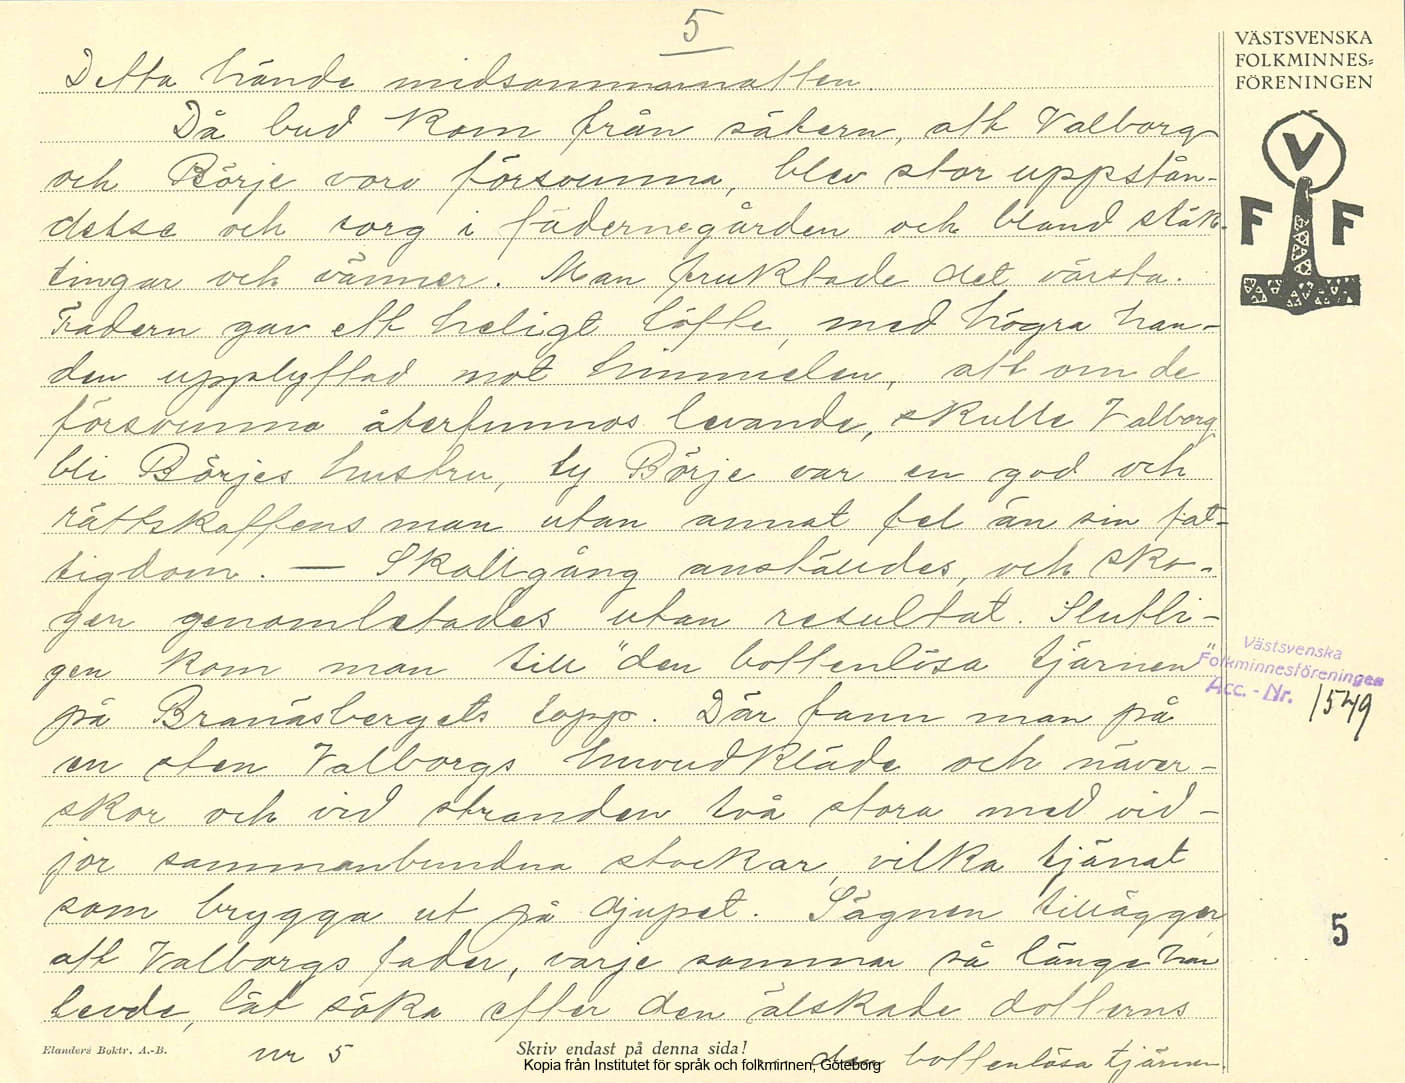 5
Detta hände midsommarnatten.
Då bud kom från sätern, att Valborg
och Börje voro försvunna, blev stor uppstån-
delse och sorg i fädernegården och bland släk-
tingar och vänner. Man fruktade det värsta.
Fadern gav ett heligt löfte, med högra han-
den upplyftad mot himmelen, att om de
försvunna återfunnos levande, skulle Valborg
bli Börjes hustru, ty Börje var en god och
rättskaffens man utan annat fel än sin fat-
tigdom. — Skallgång anställdes, och sko-
gen genomletades utan resultat. Slutli-
gen kom man till "den bottenlösa tjärnen"
på Branäsbergets topp. Där fann man på
en sten Valborgs huvudkläde och näver-
skor och vid stranden två stora med vid-
jor sammanbundna stockar, vilka tjänat
som brygga ut på djupet. Sägnen tillägger,
att Valborgs fader, varje sommar så länge han
levde, lät söka efter den älskade dotterns
den bottenlösa tjärnen.
VÄSTSVENSKA
FOLKMINNES=
FÖRENINGEN
V
F F
Västsvenska
Folkminnesföreningen
Acc. - Nr. 1549
5
Elanders Boktr. A.-B.
nr 5
Skriv endast på denna sida!
Kopia från Institutet för språk och folkminnen, Göteborg